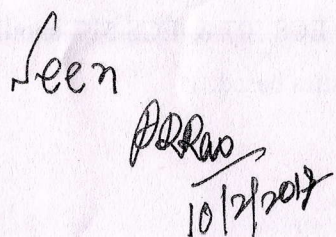 Seen
PRRao
10/2/2017